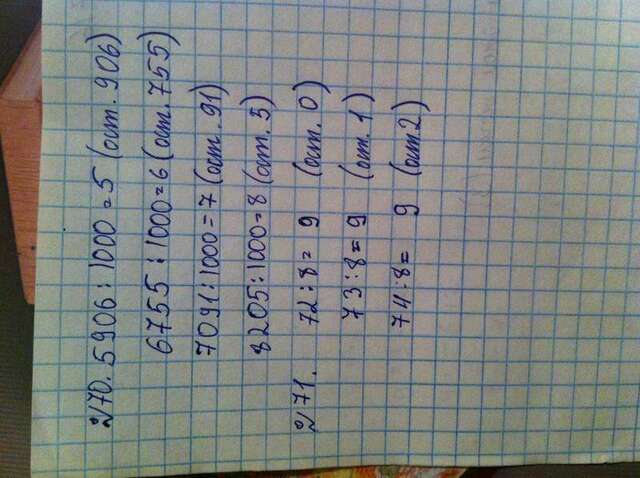 №70. 5906 : 1000 = 5 (ост. 906)
6755 : 1000 = 6 (ост. 755)
7091 : 1000 = 7 (ост. 91)
8205 : 1000 = 8 (ост. 5)
№71. 72 : 8 = 9 (ост. 0)
73 : 8 = 9 (ост. 1)
74 : 8 = 9 (ост. 2)